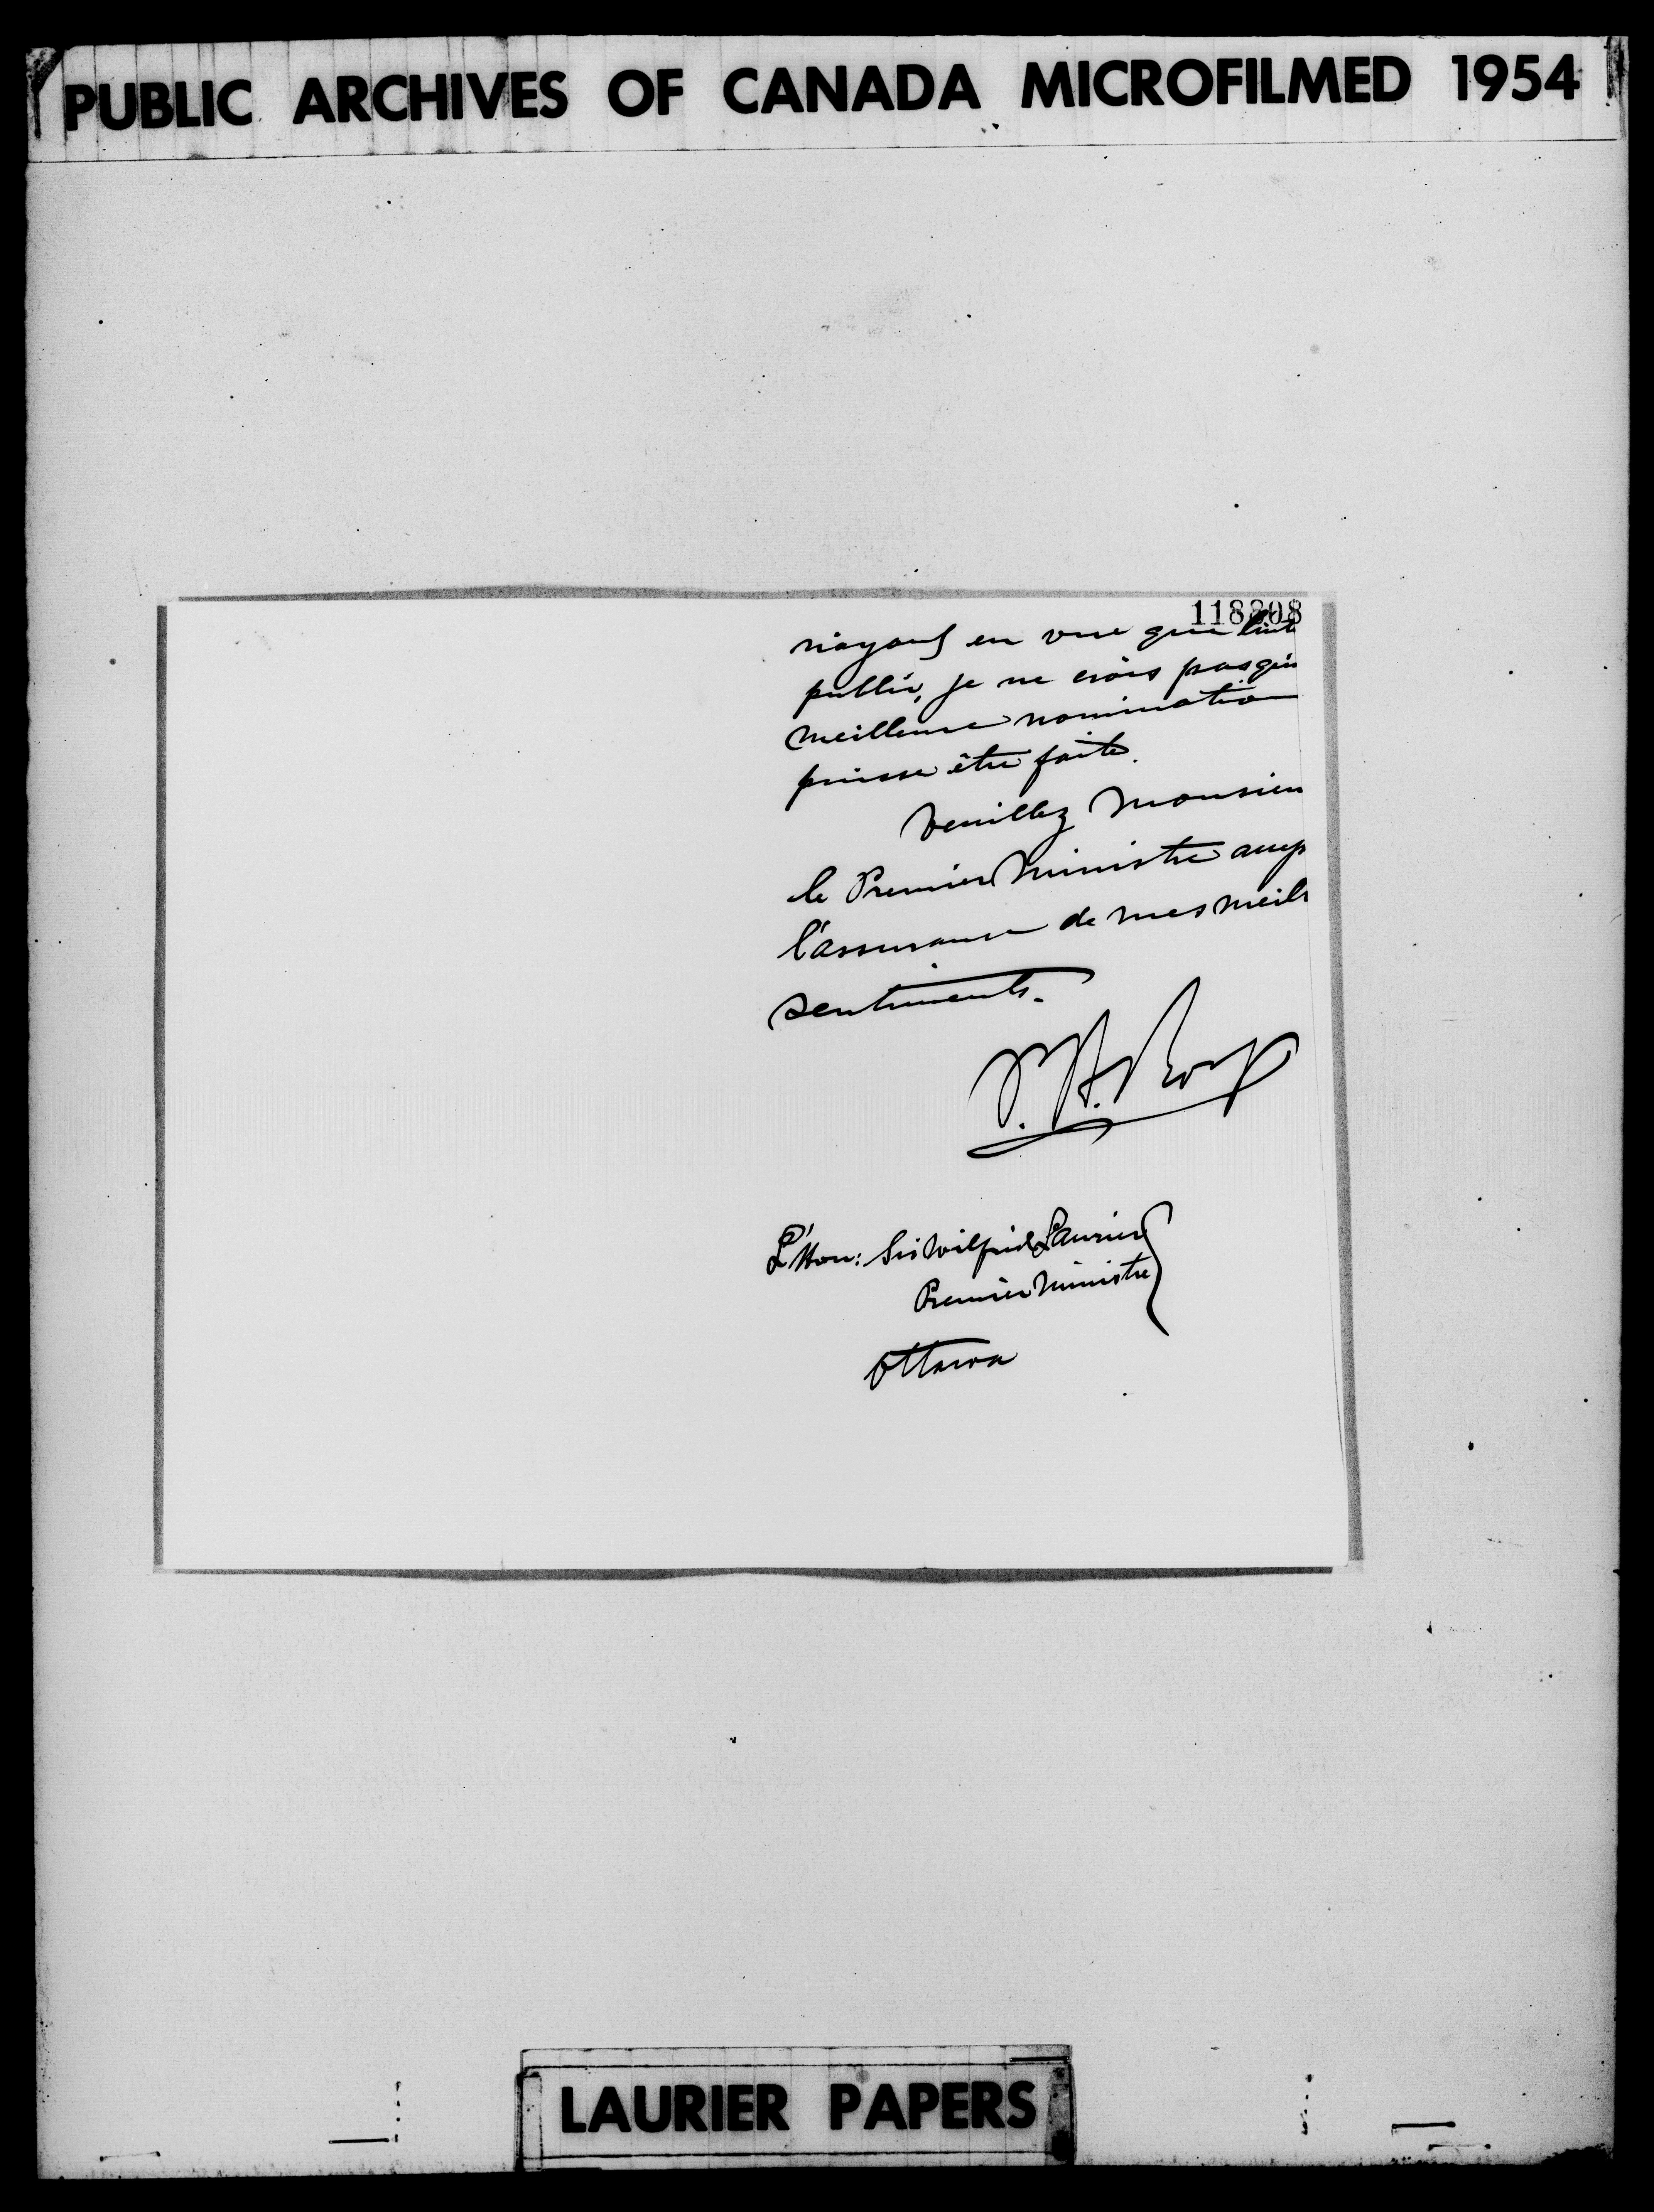 PUBLIC ARCHIVES OF CANADA MICROFILMED 1954
118808
n'ayant en vue que l'int
public, je ne crois pas qu'u
meilleure nomination
puisse être faite.
Veuillez Monsieu
le Premier Ministre accep
l'assurance de mes meill
sentiments.
L'Hon: Sir Wilfrid Laurier
Premier Ministre
Ottawa
LAURIER PAPERS